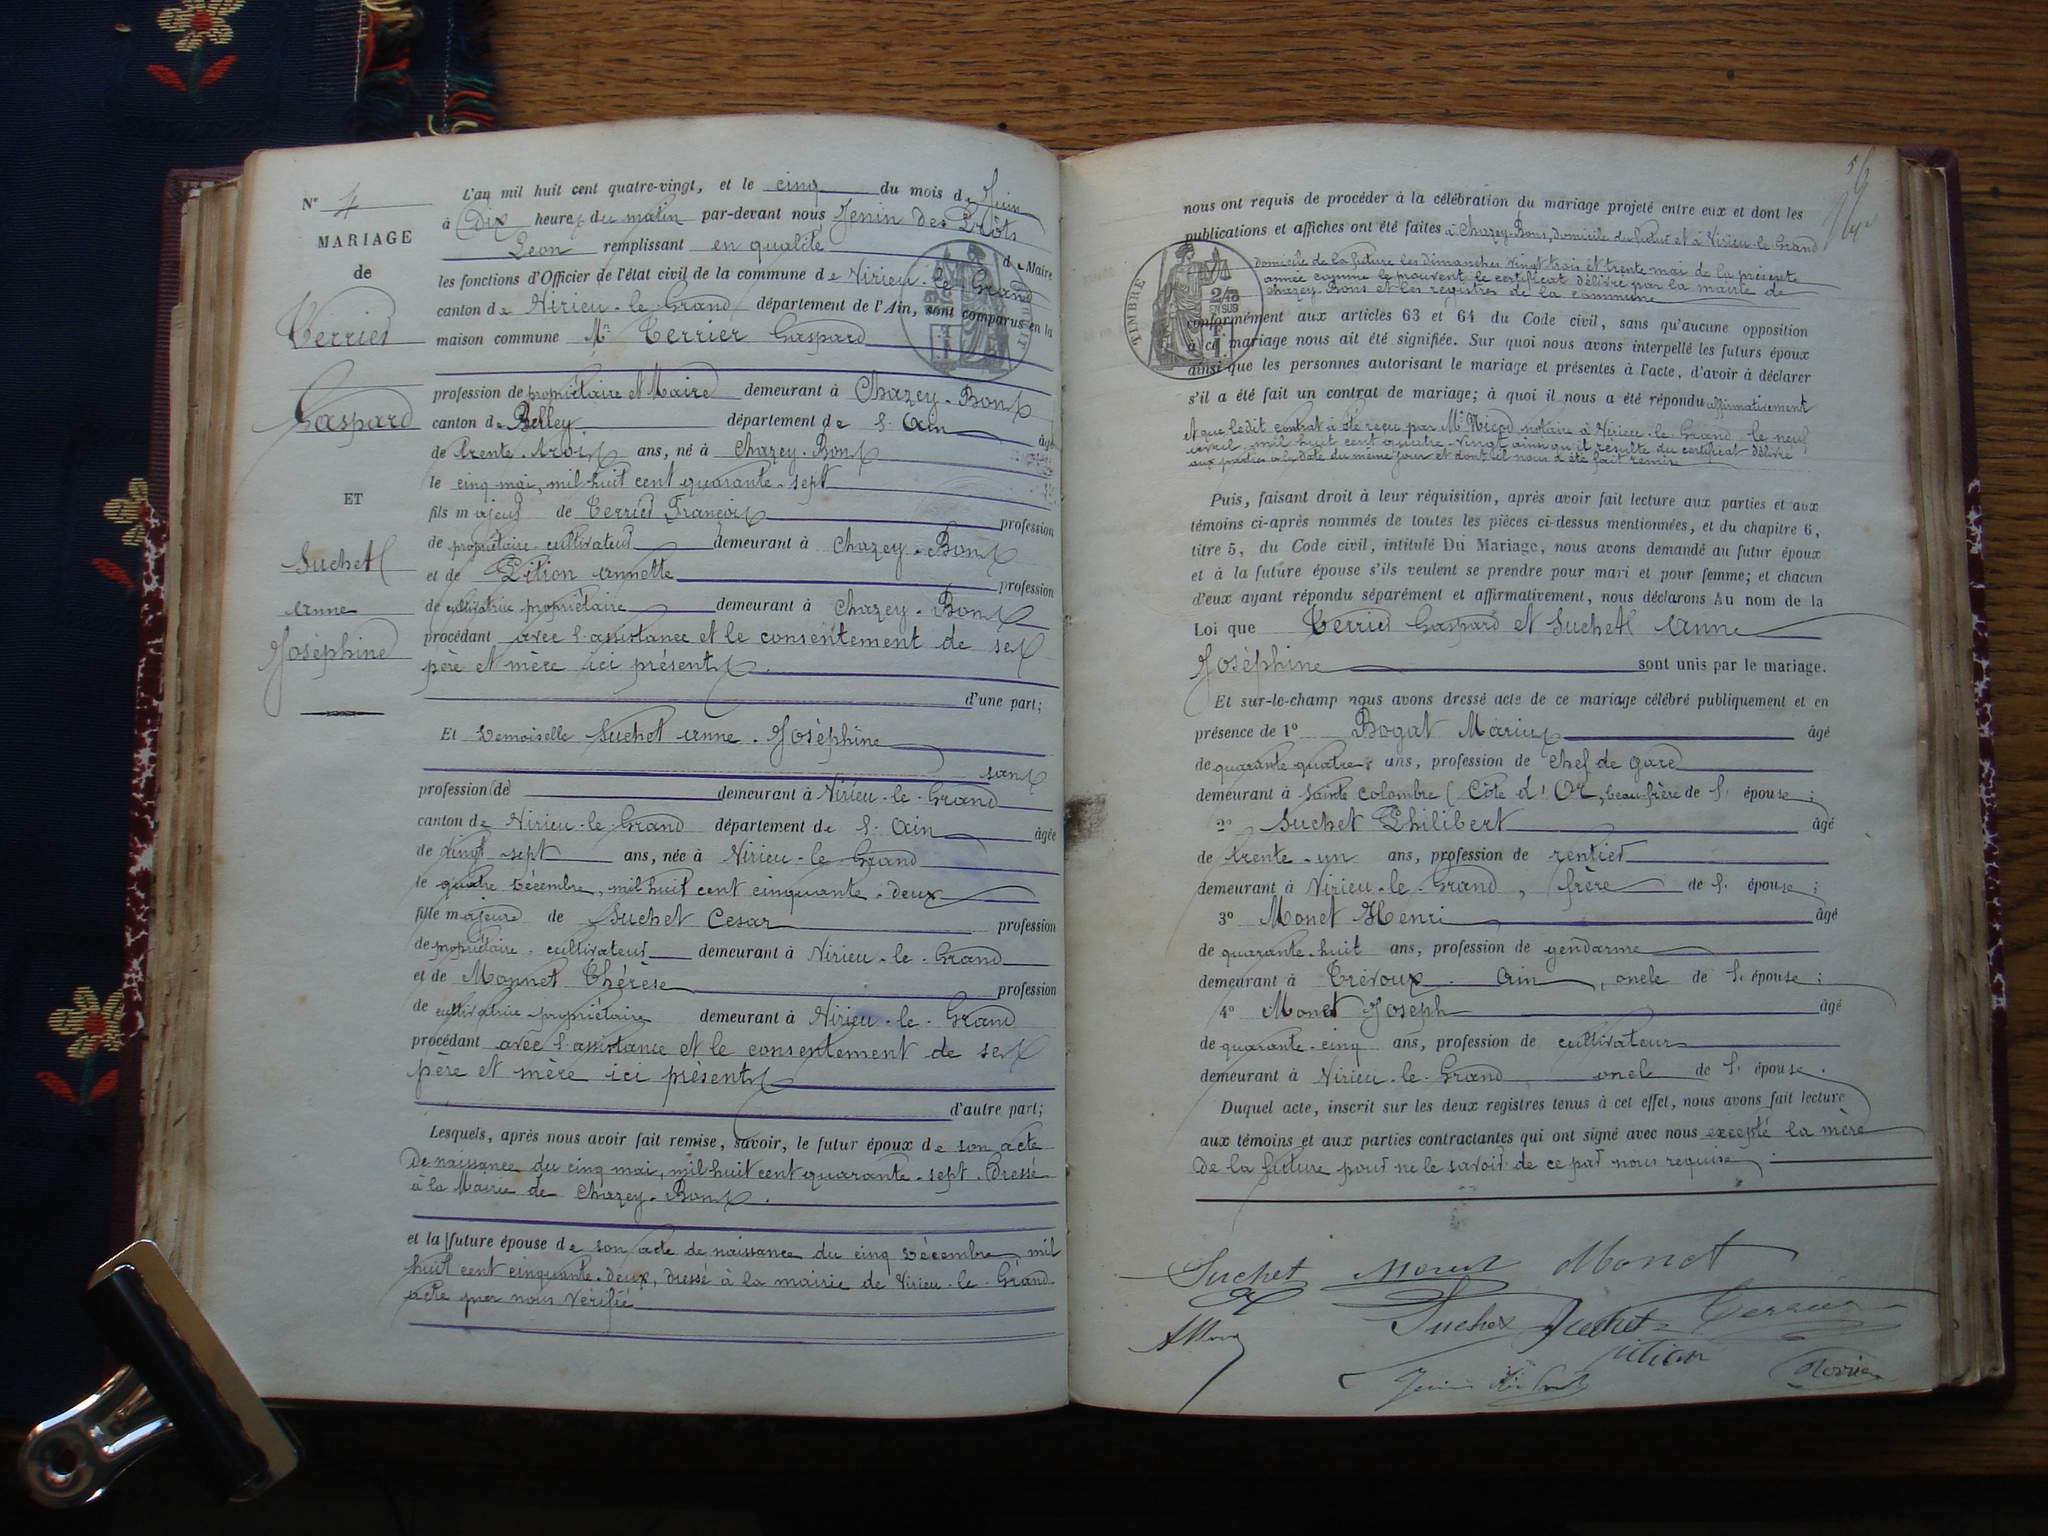 N° 4
MARIAGE
de
Terrier
Gaspard
ET
Suchet
Anne
Joséphine
L'an mil huit cent quatre-vingt, et le cinq du mois de Juin
à Dix heures du matin par-devant nous Jenin des Prôts
Leon remplissant en qualité de Maire
les fonctions d'Officier de l'état civil de la commune de Virieu-le-Grand
canton de Virieu-le-Grand département de l'Ain, sont comparus en la
maison commune Mr Terrier Gaspard
profession de propriétaire et Maire demeurant à Chazey-Bons
canton de Belley département de l'Ain âgé
de trente-trois ans, né à Chazey-Bons
le cinq mai, mil huit cent quarante-sept
fils majeur de Terrier François profession
de propriétaire-cultivateur demeurant à Chazey-Bons
et de Pition Annette profession
de cultivatrice propriétaire demeurant à Chazey-Bons
procédant avec l'assistance et le consentement de ses
père et mère ici présents
d'une part;
Et Demoiselle Suchet Anne-Joséphine
sans
profession de demeurant à Virieu-le-Grand
canton de Virieu-le-Grand département de l'Ain âgée
de vingt-sept ans, née à Virieu-le-Grand
le quatre Décembre, mil huit cent cinquante-deux
fille majeure de Suchet Cesar profession
de propriétaire-cultivateur demeurant à Virieu-le-Grand
et de Monnet Thérèse profession
de cultivatrice-propriétaire demeurant à Virieu-le-Grand
procédant avec l'assistance et le consentement de ses
père et mère ici présents
d'autre part;
Lesquels, après nous avoir fait remise, savoir, le futur époux de son acte
De naissance du cinq mai, mil huit cent quarante-sept. Dressé
à la Mairie de Chazey-Bons.
et la future épouse de son acte de naissance du cinq Décembre mil
huit cent cinquante-deux, dressé à la mairie de Virieu-le-Grand
acte par nous vérifié
56
nous ont requis de procéder à la célébration du mariage projeté entre eux et dont les
publications et affiches ont été faites à Chazey-Bons, domicile du futur et à Virieu-le-Grand
domicile de la future les dimanches vingt trois et trente mai de la présente
année comme le prouvent le certificat délivré par la mairie de
Chazey-Bons et les registres de la commune
TIMBRE
conformément aux articles 63 et 64 du Code civil, sans qu'aucune opposition
à ce mariage nous ait été signifiée. Sur quoi nous avons interpellé les futurs époux
ainsi que les personnes autorisant le mariage et présentes à l'acte, d'avoir à déclarer
s'il a été fait un contrat de mariage; à quoi il nous a été répondu affirmativement
et que ledit contrat a été reçu par Me Nicod notaire à Virieu-le-Grand le neuf
avril, mil huit cent quatre-vingt ainsi qu'il résulte du certificat délivré
aux parties à la date du même jour et dont il nous a été fait remise
Puis, faisant droit à leur réquisition, après avoir fait lecture aux parties et aux
témoins ci-après nommés de toutes les pièces ci-dessus mentionnées, et du chapitre 6,
titre 5, du Code civil, intitulé Du Mariage, nous avons demandé au futur époux
et à la future épouse s'ils veulent se prendre pour mari et pour femme; et chacun
d'eux ayant répondu séparément et affirmativement, nous déclarons Au nom de la
Loi que Terrier Gaspard et Suchet Anne
Joséphine sont unis par le mariage.
Et sur-le-champ nous avons dressé acte de ce mariage célébré publiquement et en
présence de 1° Bogat Marius âgé
de quarante quatre ans, profession de chef de gare
demeurant à Sainte Colombe (Côte d'Or, beau frère de l'épouse;
2° Suchet Philibert âgé
de trente-un ans, profession de rentier
demeurant à Virieu-le-Grand, frère de l'épouse;
3° Monet Henri âgé
de quarante-huit ans, profession de gendarme
demeurant à Trévoux. Ain, oncle de l'épouse;
4° Monet Joseph âgé
de quarante-cinq ans, profession de cultivateur
demeurant à Virieu-le-Grand oncl de l'épouse.
Duquel acte, inscrit sur les deux registres tenus à cet effet, nous avons fait lecture
aux témoins et aux parties contractantes qui ont signé avec nous excepté la mère
De la future pour ne le savoir de ce par nous requise
Suchet Monet Monet
Suchet Suchet Terrier
pition
Terrier